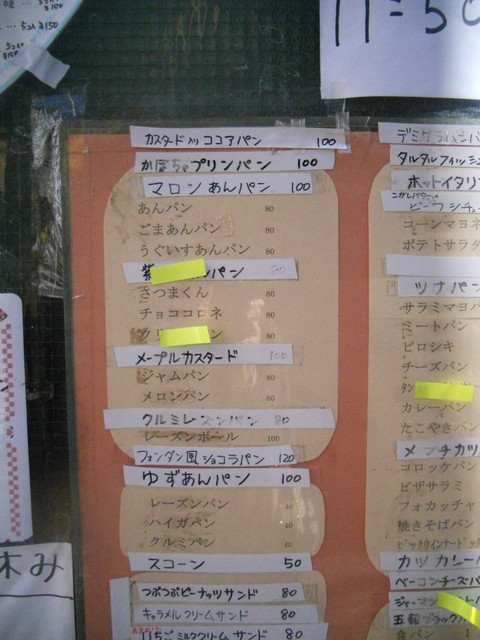 5コ入 ¥150
11:50
カスタード入りココアパン 100
かぼちゃプリンパン 100
マロンあんパン 100
あんパン 80
ごまあんパン 80
うぐいすあんパン 80
紫 パン 80
さつまくん 80
チョココロネ 80
メープルカスタード 100
ジャムパン 80
メロンパン 80
クルミレーズンパン 80
レーズンボール 100
フォンダン風ショコラパン 120
ゆずあんパン 100
レーズンパン
ハイガパン
クルミパン
スコーン 50
つぶつぶピーナッツサンド 80
キャラメルクリームサンド 80
いちごミルククリームサンド 80
休み
タルタルフィッシュ
ホットイタリ
こがしバター
ビーフシチュ
コーンマヨネ
ポテトサラダ
ツナパン
サラミマヨパ
ミートパン
ピロシキ
チーズパン
カレーパン
たこやきパン
メンチカツ
コロッケパン
ピザサラミ
フォカッチャ
焼きそばパン
ビックウインナードッ
カツカレーパ
ベーコンチーズパ